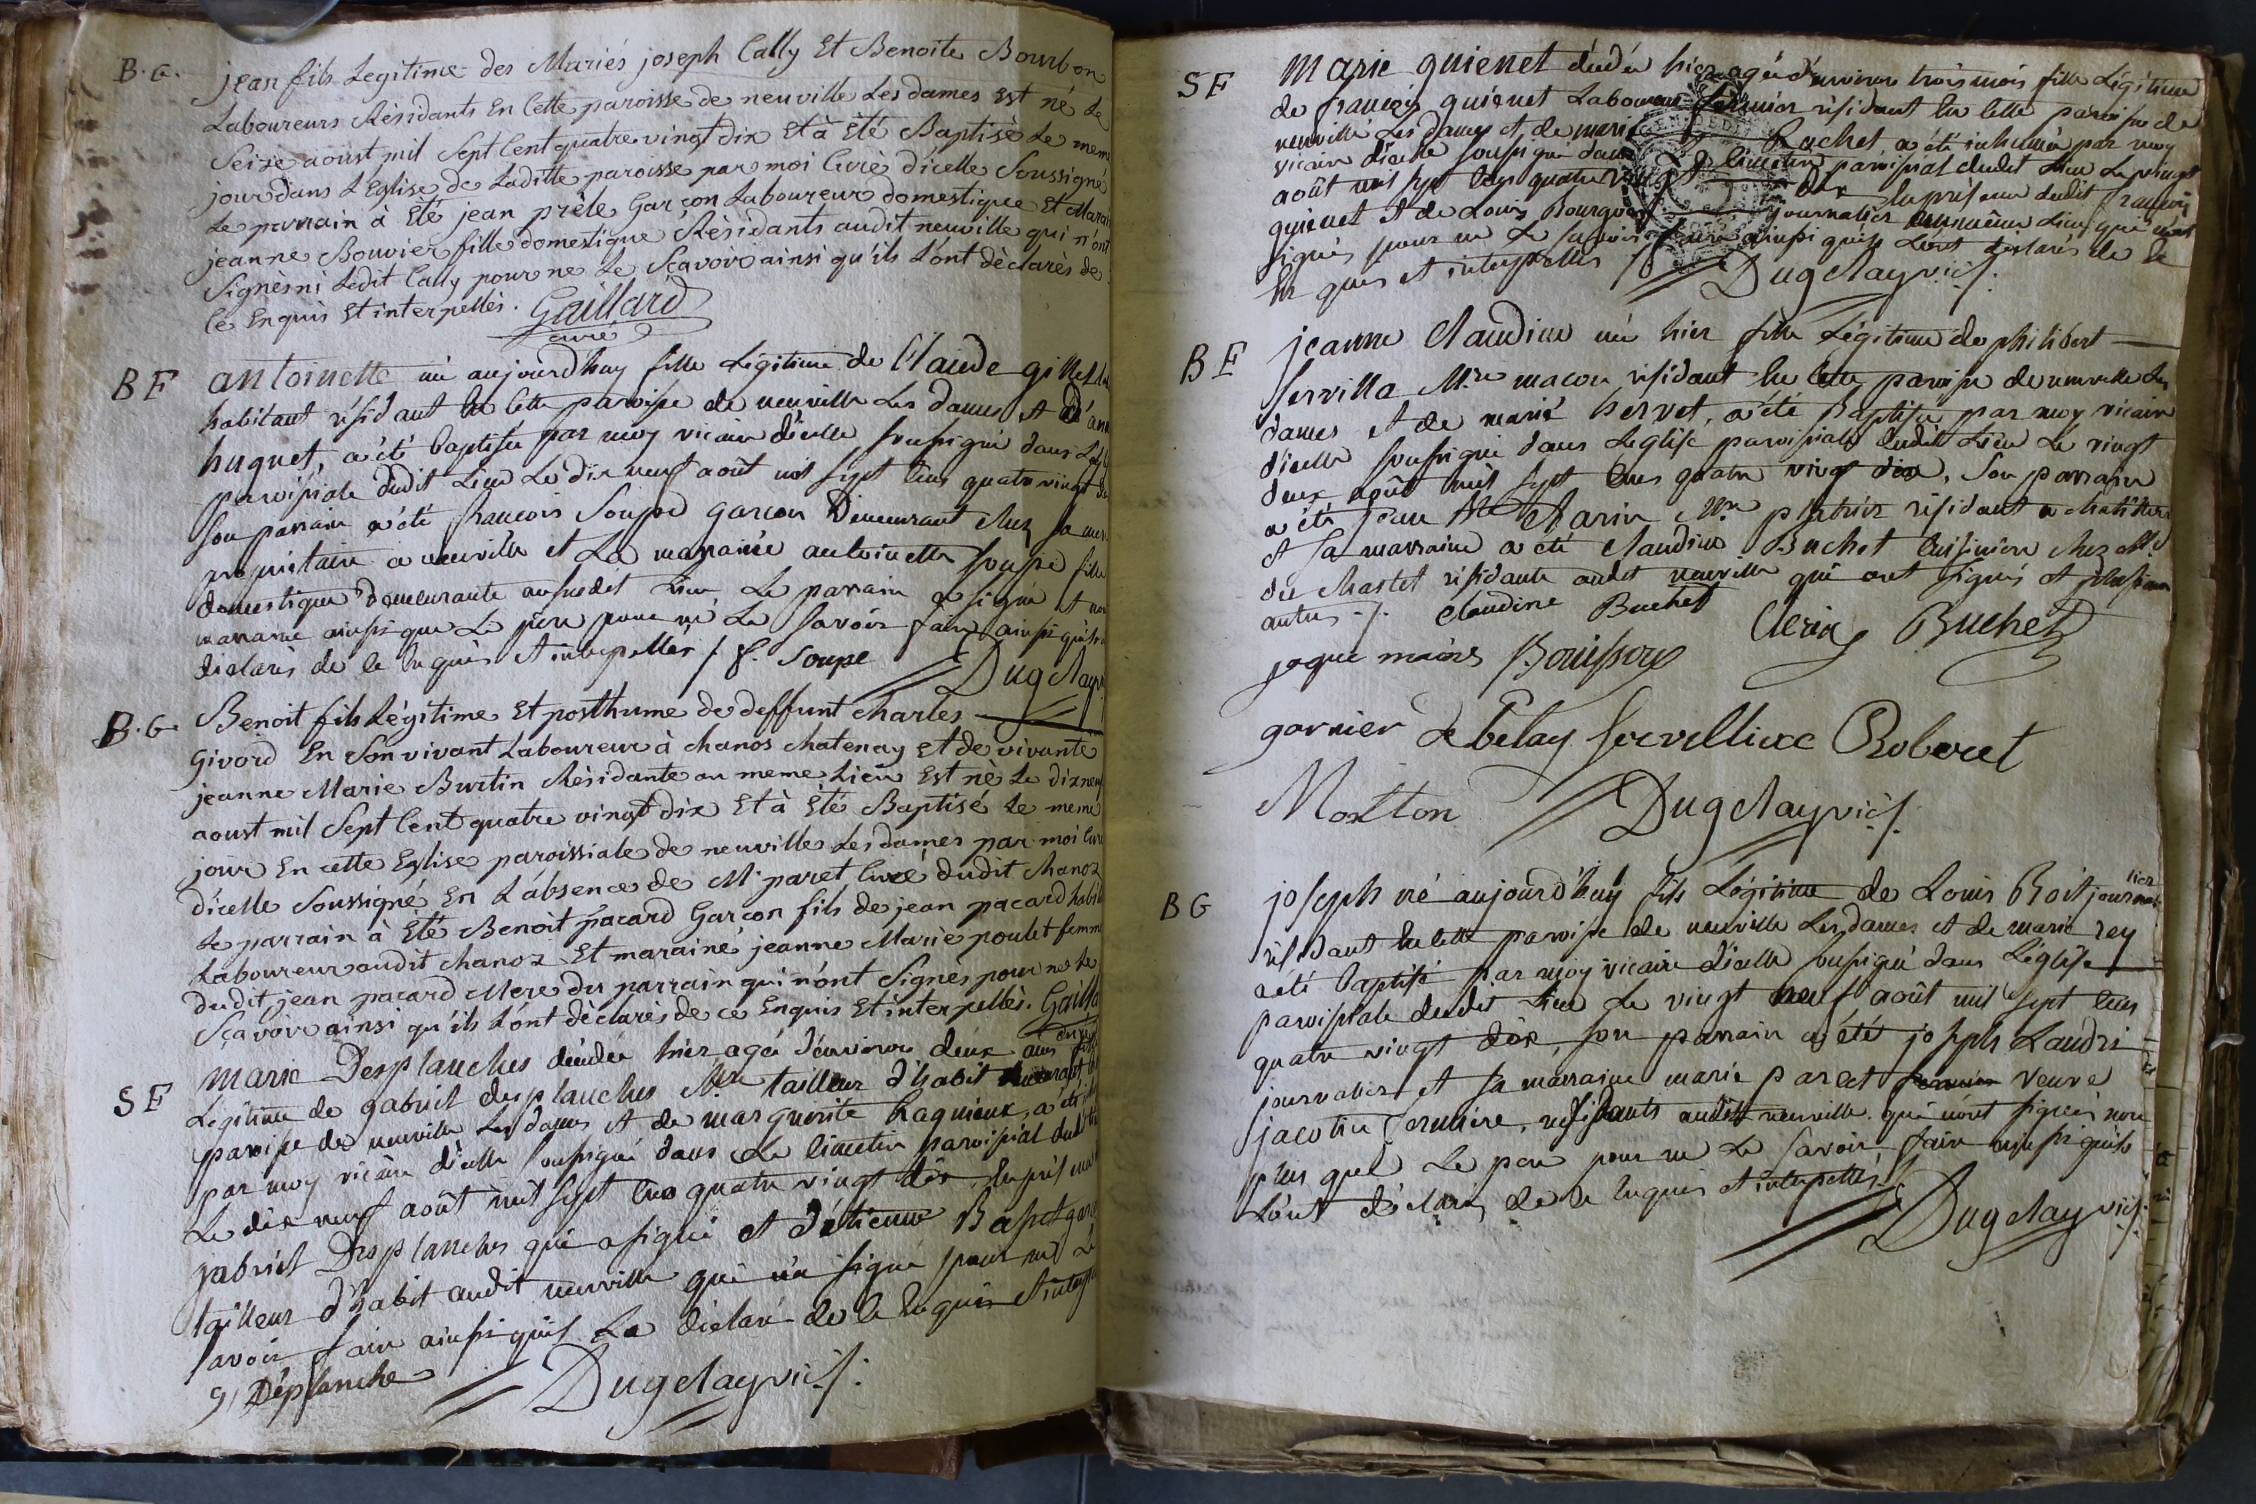 B.G.
jean fils Legitime des Mariés joseph Cally Et Benoite Bourbon
Laboureurs Résidants En Cette paroisse de neuville Les dames est né Le
Seize aoust mil Sept Cent quatre vingt dix Et à Eté Baptisé Le meme
jour dans L'Eglise de Laditte paroisse par moi Curé dicelle Soussigné
Le parrain à Eté jean prèle Garçon Laboureur domestique Et Marai
jeanne Bouvier fille domestique Résidants audit neuville qui n'ont
Signès ni Ledit Cally pour ne Le Sçavoir ainsi qu'ils L'ont dèclarès de
ce Enquis Et interpellès. Gaillard
curé
BF
antoinette née aujourdhuy fille Légitime de Claude gillet
habitant résidant en cette paroisse de neuville Les dames et d'ann
huguet, a été baptisée par moy vicaire dicelle soussigné dans
paroissiale dudit Lieu Le dix neuf août mil sept cens quatre vingt
son parrain a été françois Soupe garcon Demeurant chez sa mere
propriétaire a neuville et La maraine antoinette soupe fille
domestique demeurante ausudet Lieu Le parrain a signé et non
maraine ainsi que Le pere pour ne Le savoir faire ainsi
déclarés de ce Enquis et interpellés /. f. Soupe
Dugelay
B.G.
Benoit fils Légitime Et posthume de deffunt Charles
Givord En Son vivant Laboureur à Chanos Chatenay Et de vivante
jeanne Marie Burtin Résidante au meme Lieu Est né Le dix neuf
aoust mil Sept Cent quatre vingt dix Et à Eté Baptisé Le meme
jour En cette Eglise paroissiale de neuville Les dames par moi Curé
dicelle Soussigné En L'absence de Mr paret Curé dudit Chanoz
Le parrain à Eté Benoit pacard Garçon fils de jean pacard
Laboureur audit Chanoz Et marainé jeanne Marie poulet femme
dudit jean pacard Mere du parrain qui n'ont Signès pour ne Le
Sçavoir ainsi qu'ils L'ont dèclarès de ce Enquis Et interpellès.
SF
Marie Desplanches décédée hier agée d'environ deux ans
Légitime de gabriel desplanches Mtre tailleur d'habit
paroisse de neuville Les dames et de marguerite
par moy vicaire dicelle soussigné dans Le cimetiere paroissial
Le dix neuf août mil sept cens quatre vingt dix. En présence
gabriel Desplanches qui a signé et d'étienne
tailleur d'habit audit neuville qui n'a signé pour ne Le
savoir faire ainsi quil La déclaré de ce Enquis et
g, Déplanche
Dugelay vic/.
SF
Marie quienet décédée hier agée d'environ trois mois fille Légitime
de françois quienet Laboureur fermier résidant En Cette paroisse de
neuville Les dames et de marie Rochet a été inhumée par moy
vicaire dicelle soussigné dans Le cimetiere paroissial dudit Lieu Le vingt
août mil sept cens quatre vingt dix En présence dudit françois
quienet et de Louis journalier au même Lieu qui n'ont
signés pour ne Le savoir faire ainsi quils Lont declarés de ce
En quis et interpellés
Dugelay vic/.
BF
jeanne Claudine née hier fille Légitime de philibert
Servilla Mtre macon résidant En Cette paroisse de neuville Les
dames et de marie hervet, a été Baptisée par moy vicaire
dicelle soussigné dans Leglise paroissiale dudit Lieu Le vingt
deux août mil sept cens quatre vingt dix, son parrain
a été jean Mtre platrier résidant a chatillon
et sa marraine a été Claudine Buchet Cuisiniere chez
du Chastel résidante audit neuville qui ont signés et plusieurs
autres /. Claudine Buchet Buchet
joque maire
garnier Debelay Servellieee Roberet
Motton Dugelay vic/.
BG
joseph né aujourd'huy fils Légitime de Louis Roit journalier
résidant En Cette paroisse de neuville Les dames et de marie rey
a été baptisé par moy vicaire dicelle soussigné dans Léglise
paroissiale dudit Lieu Le vingt neuf août mil sept cens
quatre vingt dix, son parrain a été joseph Laudri
journalier et sa marraine marie paret veuve
jacotin fermiere, résidants audit neuville qui n'ont signés non
plus que Le pere pour ne Le savoir faire ainsi quils
Lont déclarés de ce Enquis et interpellés
Dugelay vic/.